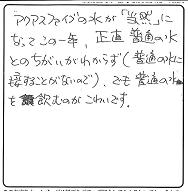 アクアスファイブの水が「当然」に
なってこの一年、正直普通の水
とのちがいがわからず(普通の水に
接することがないので)、でも普通の水
を飲むのがこわいです。